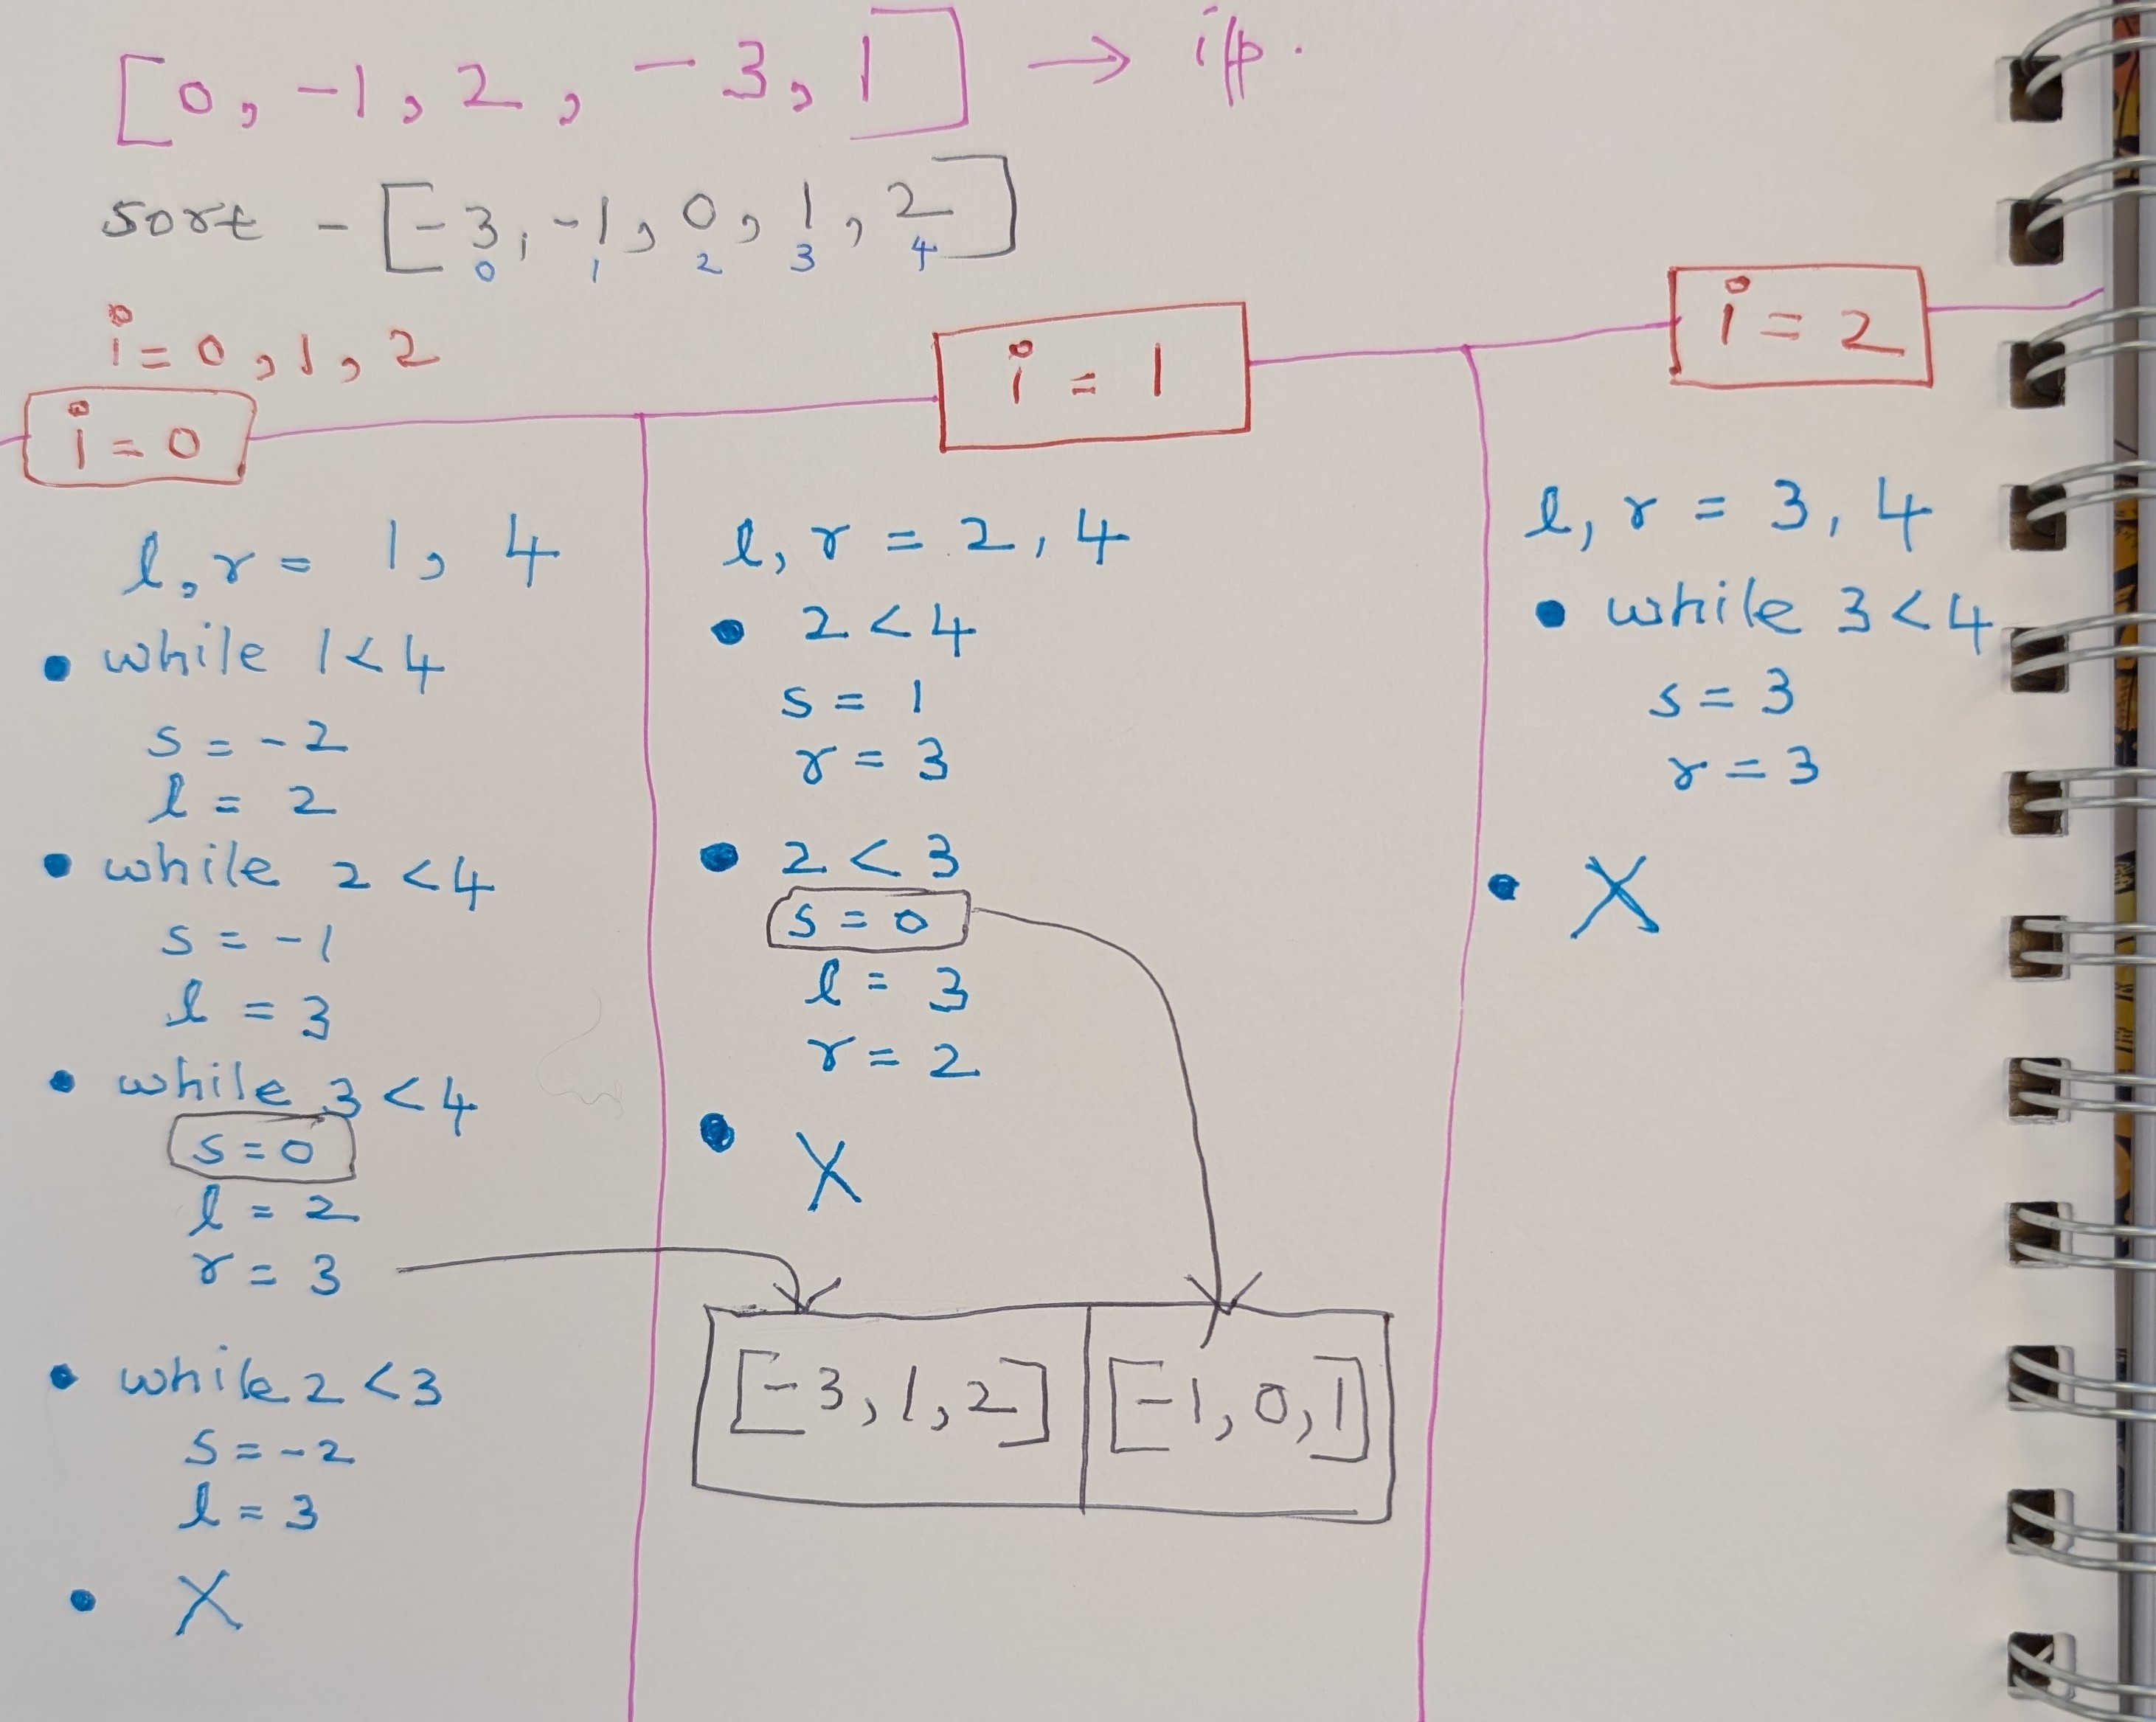 [0, -1, 2, -3, 1] → i/p.
sort - [-3, -1, 0, 1, 2]
0 1 2 3 4
i = 0, 1, 2
i = 0
l, r = 1, 4
• while 1 < 4
s = -2
l = 2
• while 2 < 4
s = -1
l = 3
• while 3 < 4
s = 0
l = 2
r = 3
• while 2 < 3
s = -2
l = 3
• X
i = 1
l, r = 2, 4
• 2 < 4
s = 1
r = 3
• 2 < 3
s = 0
l = 3
r = 2
• X
[-3, 1, 2] [-1, 0, 1]
i = 2
l, r = 3, 4
• while 3 < 4
s = 3
r = 3
• X